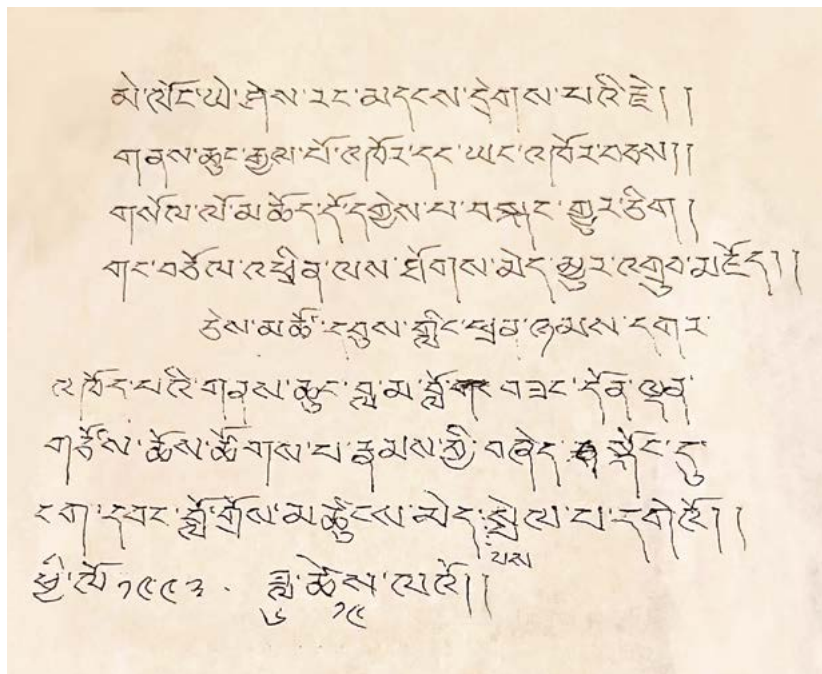 མེ་ལོང་ཡེ་ཤེས་རང་མདངས་དྲེགས་པའི་རྗེ། །
གནས་ཆུང་རྒྱལ་པོ་འཁོར་དང་ཡང་འཁོར་བཅས། །
གསོལ་ལོ་མཆོད་དོ་དགྱེས་པ་བསྐང་གྱུར་ཅིག །
གང་བཅོལ་འཕྲིན་ལས་ཐོགས་མེད་མྱུར་འགྲུབ་མཛོད། །
ཅེས་མཚོ་དབུས་གླིང་ཕྲན་ཉམས་དགར་
འཁོད་པའི་གནས་ཆུང་བླ་མ་བློ་བཟང་དོན་ལྡན་
གཙོས་ཆོས་ཚོགས་པ་རྣམས་ཀྱི་བཞེད་སྐོང་དུ་
ངག་དབང་བློ་གྲོས་མཚུངས་མེད་སྤྲེལ་བ་དགེའོ། །
པས
ཕྱི་ལོ་༡༩༩༣ . ཟླ་ཚེས་ལའོ། །
༦ ༡༩